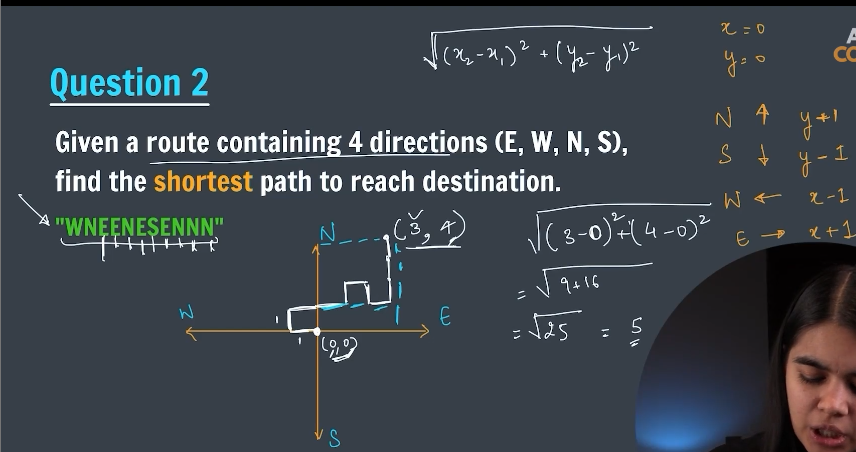 √(x₂-x₁)² + (y₂-y₁)²
x=0
y=0
Question 2
Given a route containing 4 directions (E, W, N, S),
find the shortest path to reach destination.
"WNEENESENNN"
N ↑ y+1
S ↓ y-1
W ← x-1
E → x+1
N
(3, 4)
W
E
1
1
(0,0)
S
√(3-0)²+(4-0)²
= √9+16
= √25 = 5